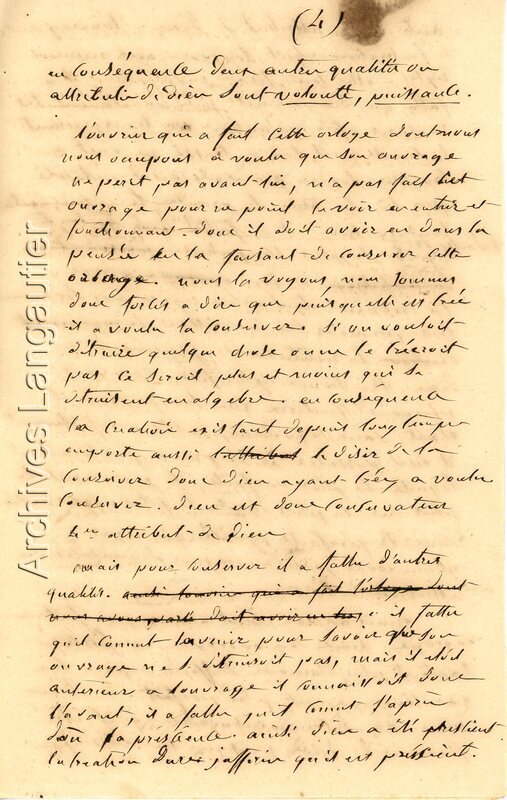 (4)
en conséquence deux autres qualités ou
attributs de Dieu sont volonté, puissance.
l'ouvrier qui a fait cette orloge dont nous
nous occupons a voulu que son ouvrage
ne perit pas avant lui, n'a pas fait cet
ouvrage pour ne point la voir en entier et
fonctionnant. donc il doit avoir eu dans la
pensée en la faisant de conserver cette
orloge. nous la voyons nous sommes
donc forcés a dire que puisqu'elle est créé
il a voulu la conserver. Si on vouloit
détruire quelque chose on ne le créeroit
pas ce seroit plus et moins qui se
detruisent en algebre. en conséquence
la creation existant depuis longtemps
emporte aussi l'attribut le désir de la
conserver donc dieu ayant créé, a voulu
conserver. Dieu est donc conservateur
4me attribut de Dieu
mais pour conserver il a fallu d'autres
qualités. ainsi l'ouvrier qui a fait l'orloge dont
nous avons parlé doit avoir eu il fallu
qu'il connut l'avenir pour savoir que son
ouvrage ne se détruiroit pas, mais il etoit
anterieur a l'ouvrage il connaissoit donc
l'avant, il a fallu qu'il connut l'après
donc sa prescience. ainsi dieu a été prescient
la creation dure j'affirme qu'il est prescient.
Archives Langautier